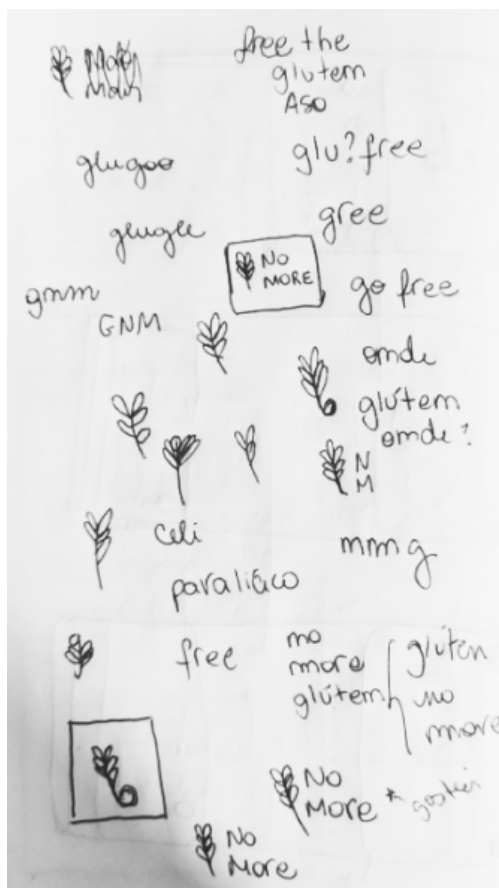 free the
glutem
ASO
glugoo
glu? free
gree
glugle
NO
MORE
go free
gmm
GNM
omde
glútem
omde?
N
M
celi
mmg
paraliáco
free
mo
more
glútem
glúten
mo
more
NO
MORE * gostei
NO
More